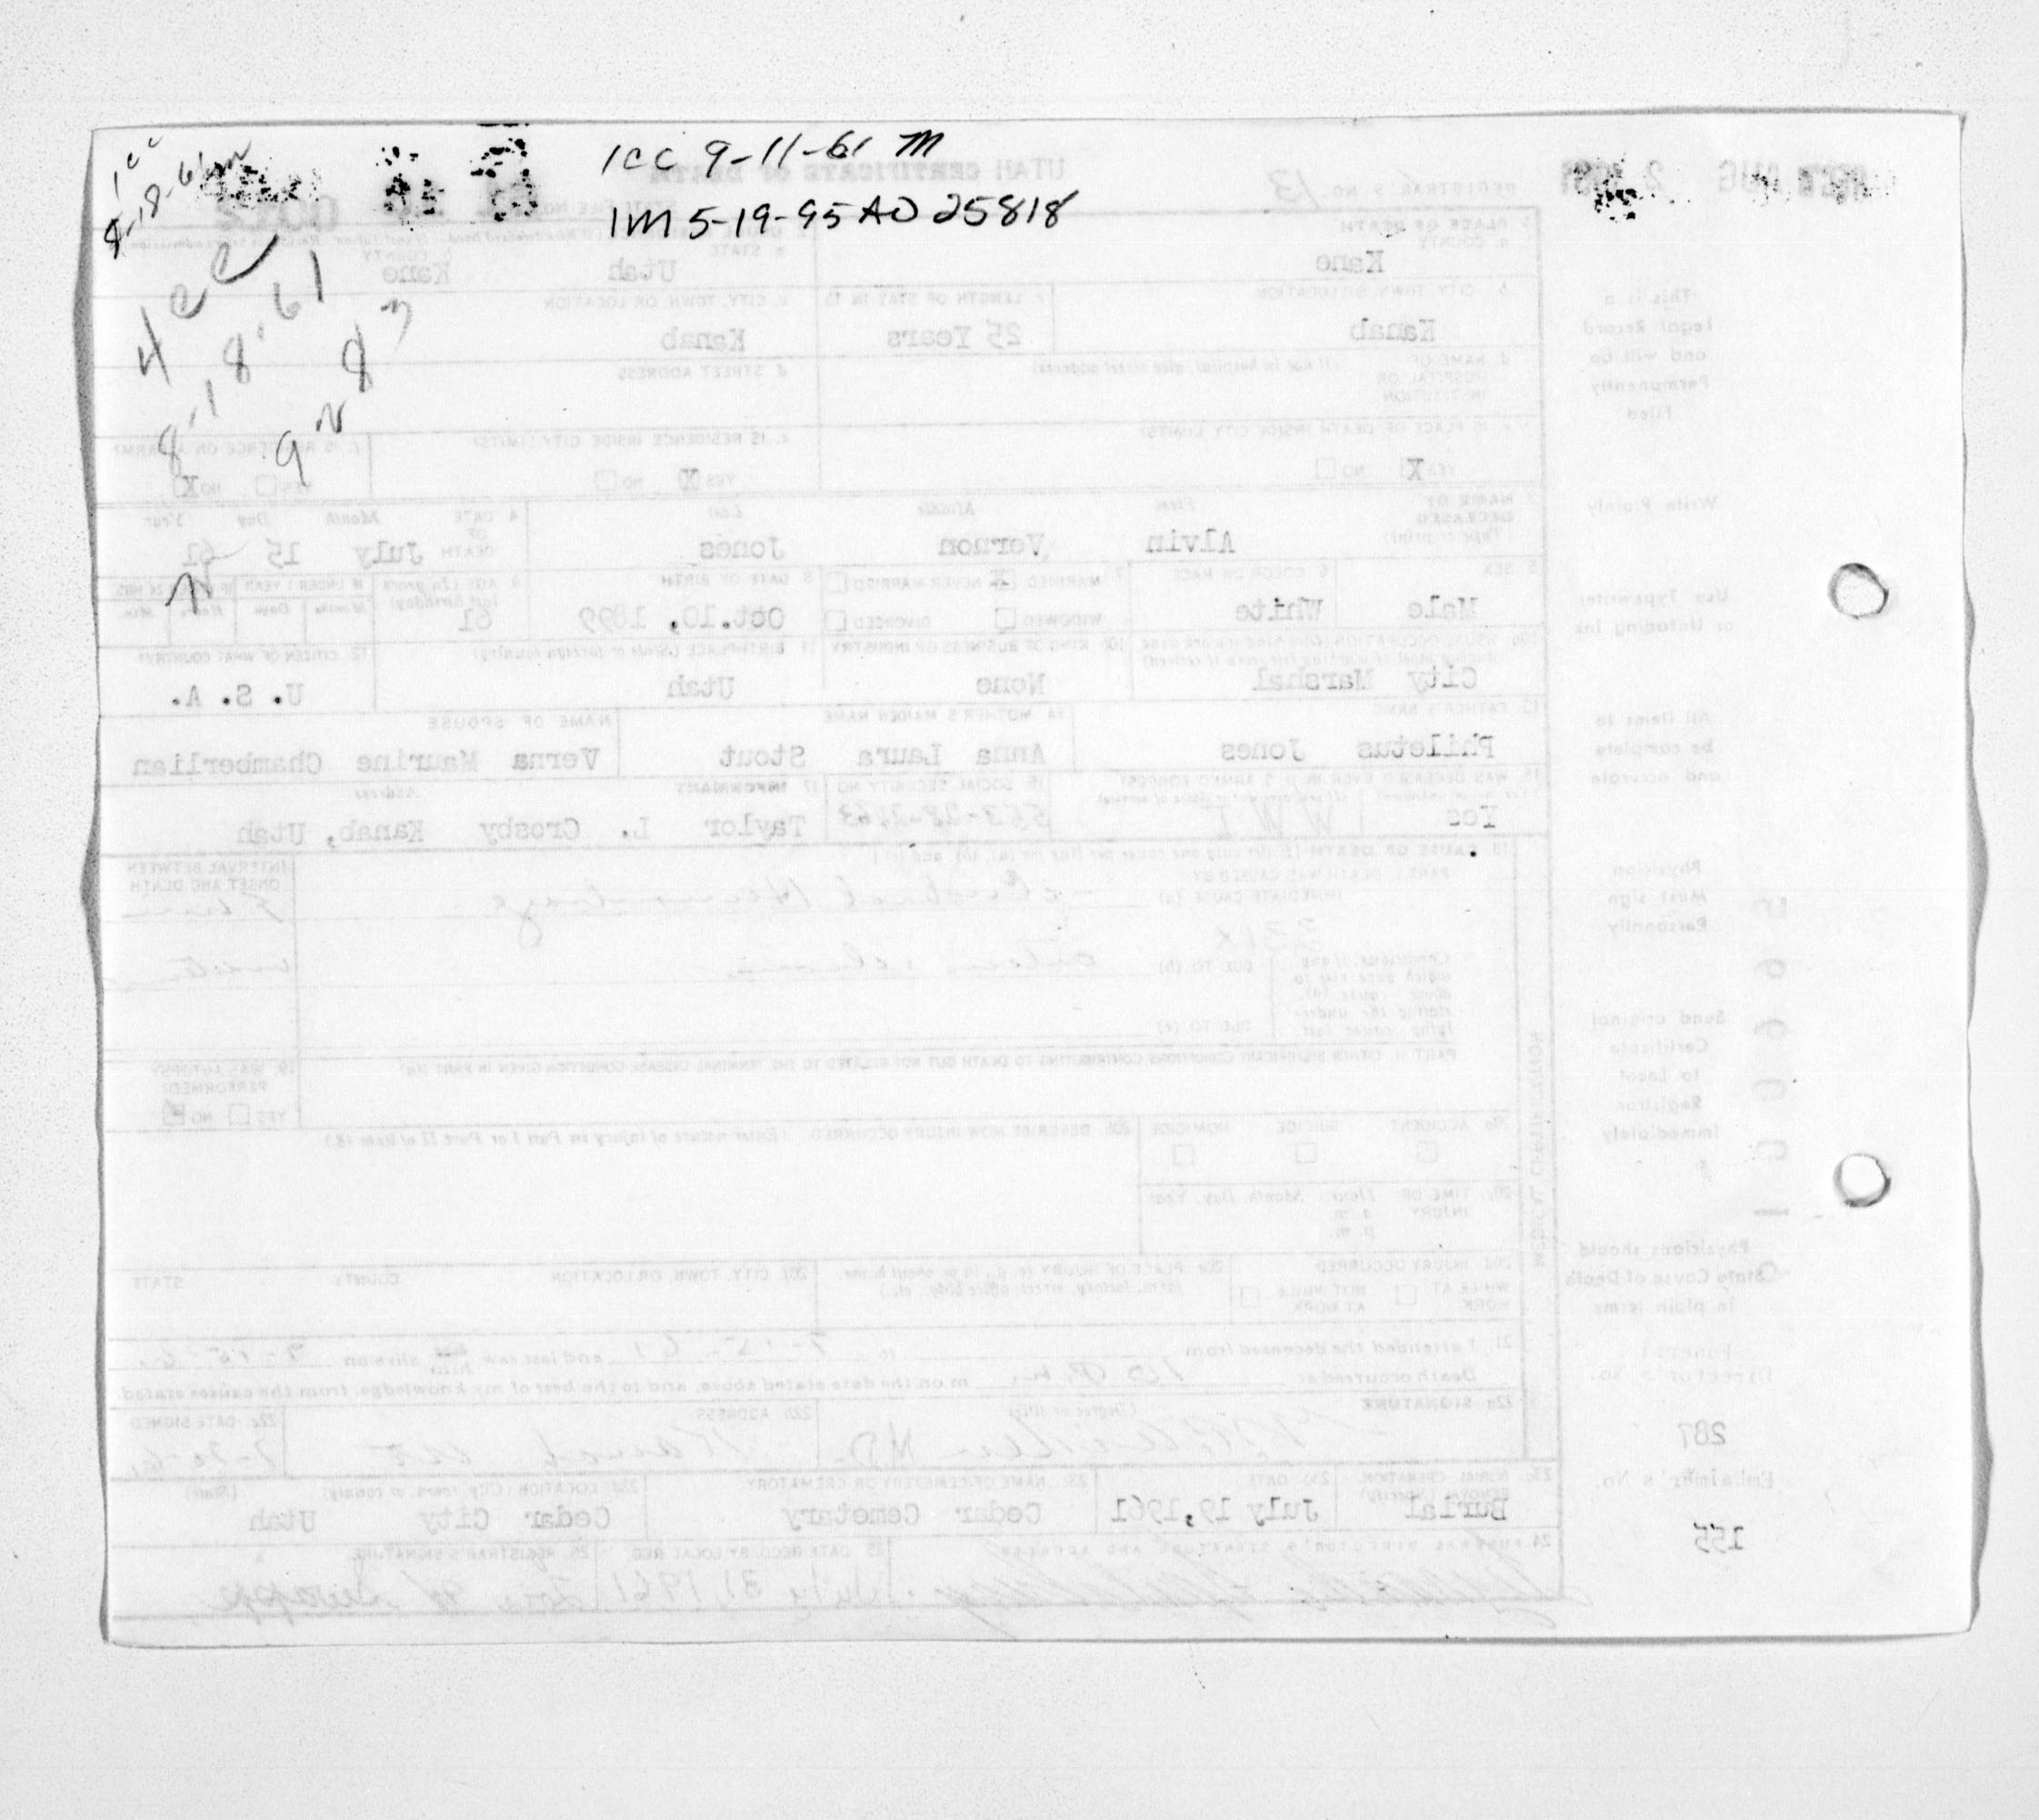 1cc 9-11-61 M
1M 5-19-95 AO 25818
1cc
8-18-61 m
4cc
8-18-61
9 28
UTAH CERTIFICATE OF DEATH
REGISTRAR'S NO. 13
AUG 2 1961
1. PLACE OF DEATH
a. COUNTY
Kane
a. STATE
Utah
COUNTY
Kane
b. CITY, TOWN, OR LOCATION
Kanab
c. LENGTH OF STAY IN 1b
25 Years
c. CITY, TOWN, OR LOCATION
Kanab
d. NAME OF HOSPITAL OR INSTITUTION
(If not in hospital, give street address)
d. STREET ADDRESS
e. IS PLACE OF DEATH INSIDE CITY LIMITS?
YES X NO
e. IS RESIDENCE INSIDE CITY LIMITS?
YES X NO
f. IS RESIDENCE ON A FARM?
YES NO X
3. NAME OF DECEASED
(Type or print)
First Middle Last
Alvin Vernon Jones
4. DATE OF DEATH
Month Day Year
July 15 61
5. SEX
Male
6. COLOR OR RACE
White
7. MARRIED X NEVER MARRIED
WIDOWED DIVORCED
8. DATE OF BIRTH
Oct.10, 1899
9. AGE (In years last birthday)
61
IF UNDER 1 YEAR
Months Days
IF UNDER 24 HRS.
Hours Min.
10a. USUAL OCCUPATION (Give kind of work done during most of working life, even if retired)
City Marshal
10b. KIND OF BUSINESS OR INDUSTRY
None
11. BIRTHPLACE (State or foreign country)
Utah
12. CITIZEN OF WHAT COUNTRY?
U. S. A.
13. FATHER'S NAME
Philetus Jones
14. MOTHER'S MAIDEN NAME
Anna Laura Stout
NAME OF SPOUSE
Verna Maurine Chamberlian
15. WAS DECEASED EVER IN U. S. ARMED FORCES?
Yes
W W I
16. SOCIAL SECURITY NO.
17. INFORMANT
Address
Taylor L. Crosby Kanab, Utah
18. CAUSE OF DEATH [Enter only one cause per line for (a), (b), and (c).]
PART I. DEATH WAS CAUSED BY:
IMMEDIATE CAUSE (a)
Cerebral Hemorrhage
INTERVAL BETWEEN ONSET AND DEATH
331X
Conditions, if any which gave rise to above cause (a), stating the underlying cause last
DUE TO (b)
DUE TO (c)
PART II. OTHER SIGNIFICANT CONDITIONS CONTRIBUTING TO DEATH BUT NOT RELATED TO THE TERMINAL DISEASE CONDITION GIVEN IN PART I(a)
19. WAS AUTOPSY PERFORMED?
YES NO
20a. ACCIDENT SUICIDE HOMICIDE
20b. DESCRIBE HOW INJURY OCCURRED. (Enter nature of injury in Part I or Part II of item 18.)
20c. TIME OF INJURY
Hour Month, Day, Year
a. m.
p. m.
20d. INJURY OCCURRED
WHILE AT WORK NOT WHILE AT WORK
20e. PLACE OF INJURY (e. g., in or about home, farm, factory, street, office bldg., etc.)
20f. CITY, TOWN, OR LOCATION COUNTY STATE
MEDICAL CERTIFICATION
21. I attended the deceased from to 7-15-61 and last saw him alive on 7-15-61
Death occurred at m on the date stated above, and to the best of my knowledge, from the causes stated.
22a. SIGNATURE (Degree or title)
M.D.
22b. ADDRESS
Kanab, Ut
22c. DATE SIGNED
23a. BURIAL, CREMATION, REMOVAL (Specify)
Burial
23b. DATE
July 19, 1961
23c. NAME OF CEMETERY OR CREMATORY
Cedar Cemetary
23d. LOCATION (City, town, or county) (State)
Cedar City Utah
24. FUNERAL DIRECTOR'S SIGNATURE AND ADDRESS
25. DATE RECD. BY LOCAL REG.
July 31, 1961
26. REGISTRAR'S SIGNATURE
This is a Legal Record and will be Permanently Filed
Write Plainly
Use Typewriter or Unfading Ink
All Items to be complete and accurate
Physician Must sign Personally
Send original Certificate to Local Registrar Immediately
Physicians should State Cause of Death in plain terms
Funeral Director's No.
287
Embalmer's No.
155